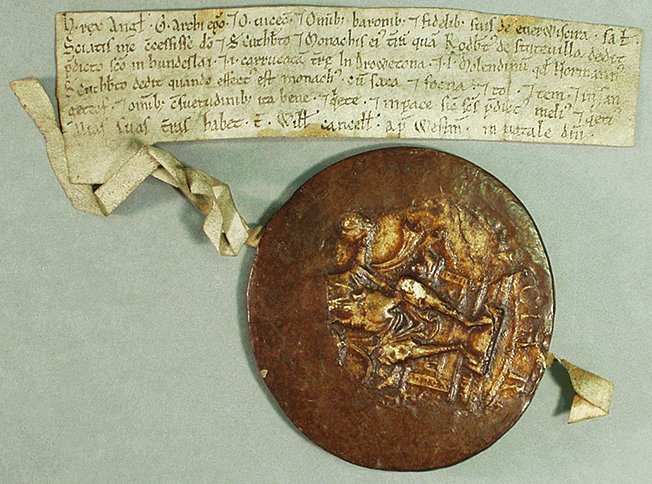 H. rex Angl. G. Archiepo. ⁊ O. vicec. ⁊ Omib. baronib. ⁊ fidelib. suis de everwicscira. sal.
Sciatis me concessisse do ⁊ S. Cuthb̄to ⁊ Monachis ei. trā quā Rodbt. de Stutevilla dedit
p̄dicto sco in hundeslai. ⁊ .i. carrucatā tr̄e In Drowetona. ⁊ .i. Molendinū qd Normann.
S. Cuthb̄to dedit quando effect. est monach. cū saca. ⁊ socna. ⁊ tol. ⁊ tem. ⁊ infan
getheof. ⁊ omib. csuetudinib. ita bene. ⁊ qete. ⁊ inpace sic scs p̄dict. meli. ⁊ qeti.
alias suas tr̄as habet. t. Will. cancell. ap. Westm. in natale dni.